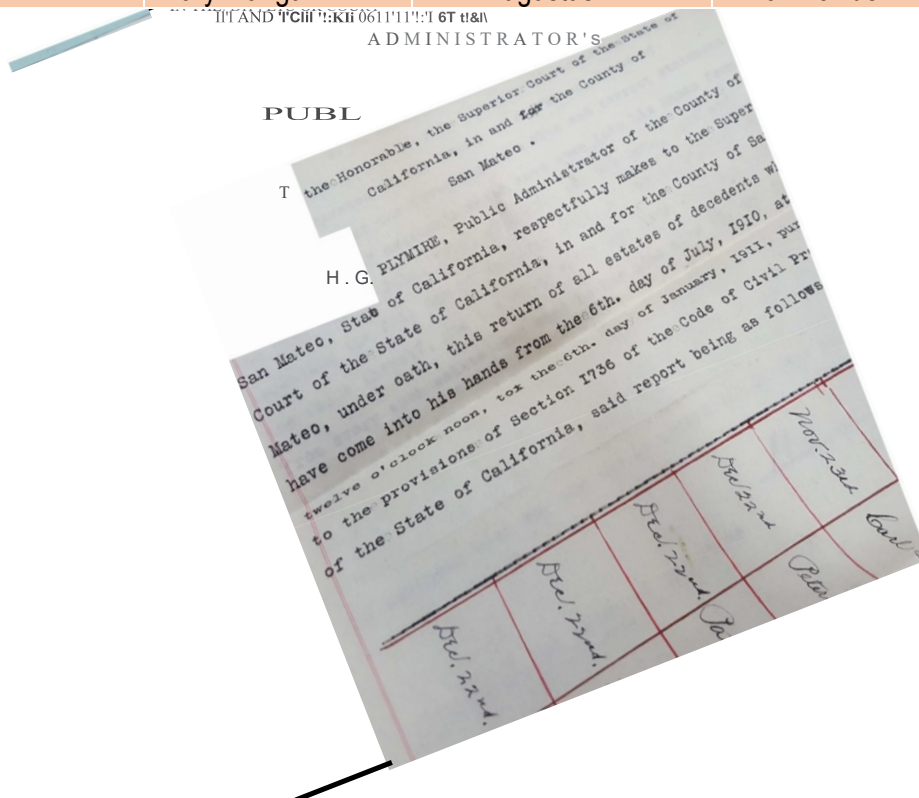 ADMINISTRATOR's
PUBL
T the Honorable, the Superior Court of the State of
California, in and for the County of
San Mateo .
H . G. PLYMIRE, Public Administrator of the County of
San Mateo, State of California, respectfully makes to the Super
Court of the State of California, in and for the County of Sa
Mateo, under oath, this return of all estates of decedents wh
have come into his hands from the 6th. day of July, I9I0, at
twelve o'clock noon, tox the 6th. day of January, 1911, pur
to the provisions of Section I736 of the Code of Civil Pr
of the State of California, said report being as follows
Nov. 23rd
Dec 22nd
Dec. 22nd.
Dec. 22nd.
Dec. 22nd.
Carl
Peter
Pa